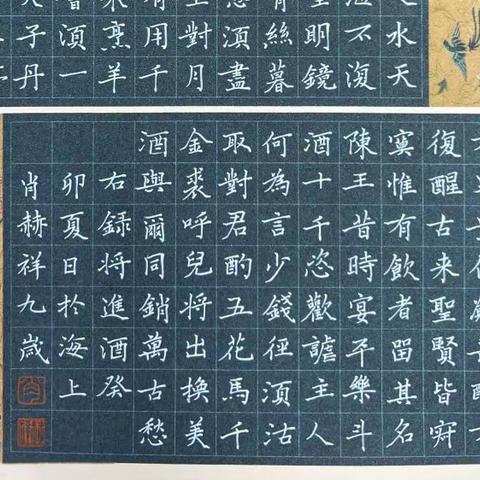 水天
不復
明鏡
絲暮
須盡
對月
有用千
來烹羊
會須一
子丹
復醒古來聖賢皆寂
寞惟有飲者留其名
陳王昔時宴平樂斗
酒十千恣歡謔主人
何為言少錢徑須沽
取對君酌五花馬千
金裘呼兒將出換美
酒與爾同銷萬古愁
右録將進酒癸
卯夏日於海上
肖赫祥九歲